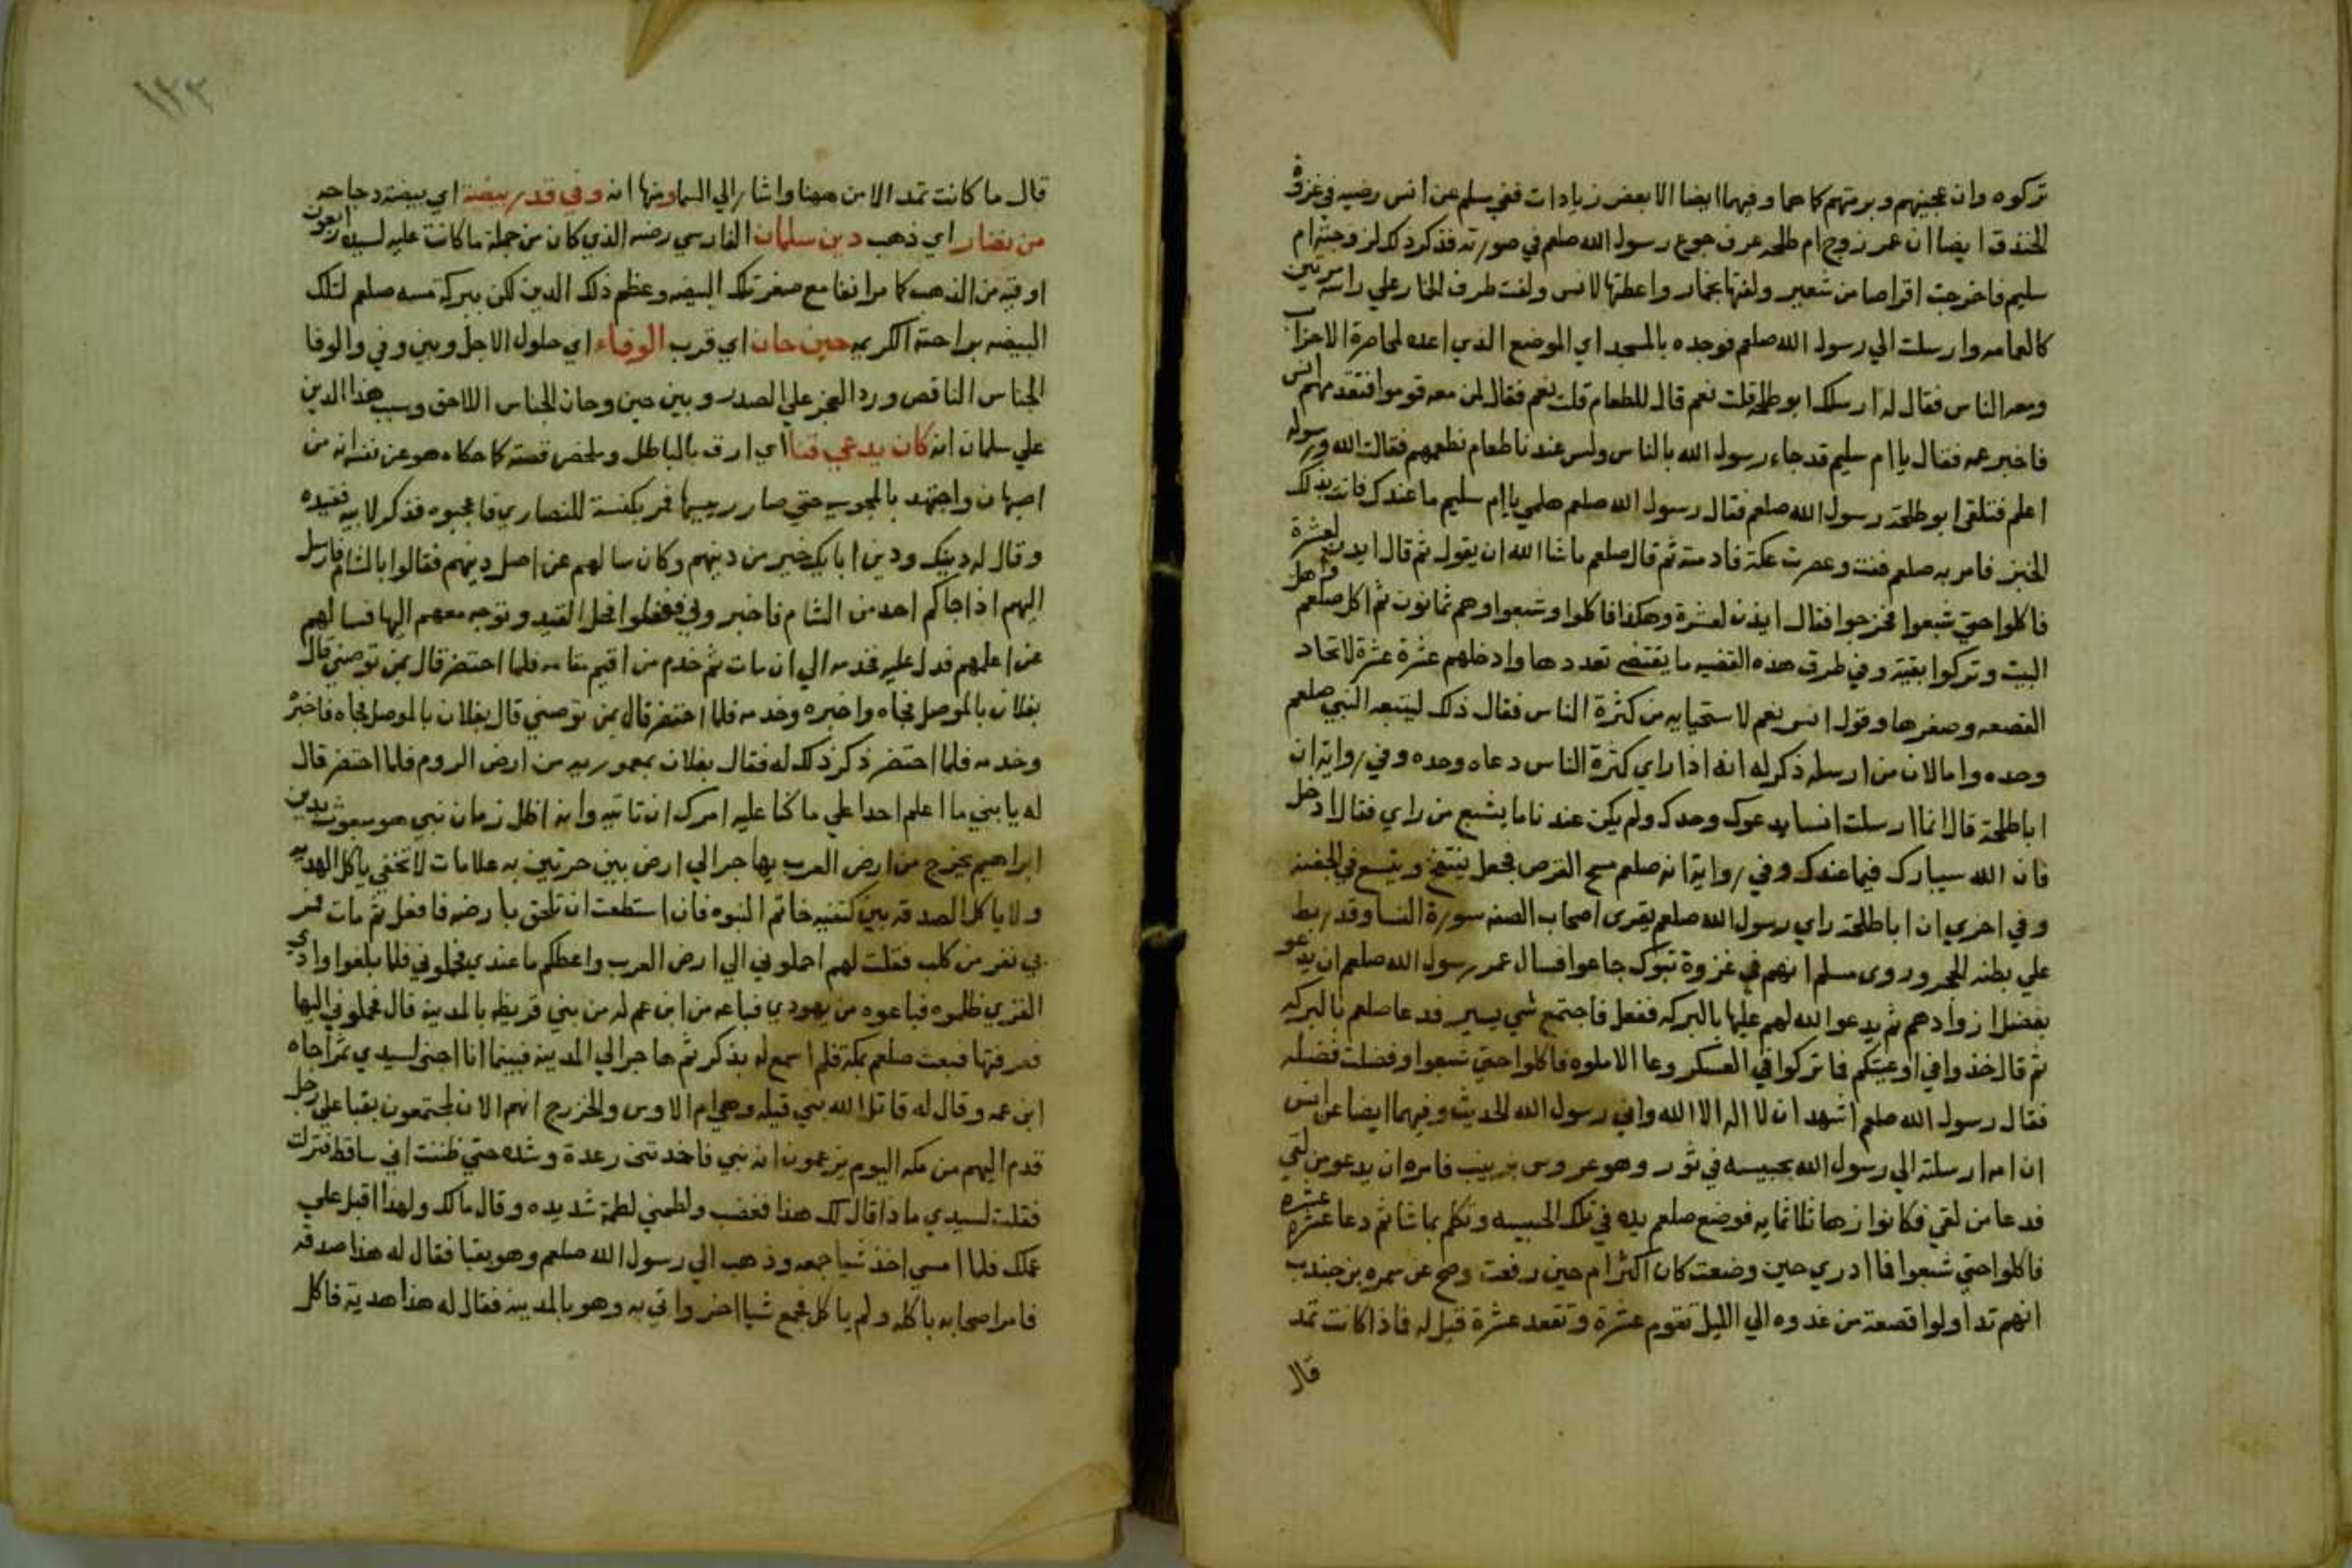 تركوه وان عجينهم وبرمتهم كما هما وفيهما ايضا الا بعض زيادات ففي مسلم عن انس رضيه في غزوة
الخندق ايضا ان عمر زوج ام طلحه عرف جوع رسول الله صلعم في صورته فذكر ذلك لزوجته ام
سليم فاخرجت اقراصا من شعير ولفتها بخمار واعطتها لانس ولفت طرف الخمار علي راسه مرتين
كالعمامه وارسلت الي رسول الله صلعم فوجده بالمسجد اي الموضع الذي اعده لمحاصرة الاحزاب
ومعه الناس فقال له ارسلك ابو طلحه قلت نعم قال للطعام قلت نعم فقال لمن معه قوموا فتقدمهم انس
فاخبر عمه فقال يا ام سليم قد جاء رسول الله بالناس وليس عندنا طعام نطعمهم فقالت الله ورسوله
اعلم فتلقي ابو طلحة رسول الله صلعم فقال رسول الله صلعم هلمي يا ام سليم ما عندك فاتت بذلك
الخبز فامر به صلعم ففت وعصرت عكة فادمته ثم قال صلعم ما شا الله ان يقول ثم قال ايذن لعشرة
فاكلوا حتي شبعوا فخرجوا فقال ايذن لعشرة وهكذا فاكلوا وشبعوا وهم ثمانون ثم اكل صلعم واهل
البيت وتركوا بقية وفي طرق هذه القضيه ما يقتضي تعددها وادخلهم عشرة عشرة لاتحاد
القصعه وصغرها وقول انس نعم لاستحيايه من كثرة الناس فقال ذلك ليتبعه النبي صلعم
وحده واما لان من ارسله ذكر له انه اذا راي كثرة الناس دعاه وحده وفي رواية ان
ابا طلحة قال انما ارسلت انسا يدعوك وحدك ولم يكن عندنا ما يشبع من راي فقال ادخل
فان الله سيبارك فيما عندك وفي رواية انه صلعم مسح القرص فجعل ينتفخ ويتسع في الجفنه
وفي اخري ان ابا طلحة راي رسول الله صلعم يقرى اصحاب الصفه سورة النسا وقد ربط
علي بطنه الحجر وروى مسلم انهم في غزوة تبوك جاعوا فسال عمر رسول الله صلعم ان يدعو
بفضل ازوادهم ثم يدعو الله لهم عليها بالبركه ففعل فاجتمع شي يسير فدعا صلعم بالبركه
ثم قال خذوا في اوعيتكم فما تركوا في العسكر وعا الا ملوه فاكلوا حتي شبعوا وفضلت فضله
فقال رسول الله صلعم اشهد ان لا اله الا الله واني رسول الله الحديث وفيهما ايضا عن انس
ان امه ارسلته الي رسول الله بحيسه في تور وهو عروس بزينب فامره ان يدعو من لقي
فدعا من لقي فكانوا زها ثلاثمايه فوضع صلعم يده في تلك الحيسه وتكلم بما شا ثم دعا عشرة عشرة
فاكلوا حتي شبعوا فما ادري حين وضعت كان اكثر ام حين رفعت وصح عن سمره بن جندب
انهم تداولوا قصعة من غدوه الي الليل تقوم عشرة وتقعد عشرة قيل له فماذا كانت تمد
قال
١٢٣
قال ما كانت تمد الا من ههنا واشار الي السما ومنها انه وفي قدر بيضة اي بيضة دجاجه
من نضار اي ذهب دين سلمان الفارسي رضه الذي كان من جملة ما كانت عليه لسيده اربعون
اوقية من الذهب كما مر انفا مع صغر تلك البيضه وعظم ذلك الدين لكن ببركة مسه صلعم لتلك
البيضه براحته الكريمه حين حان اي قرب الوفاء اي حلول الاجل وبين وفي والوفا
الجناس الناقص ورد العجز علي الصدر وبين حين وحان الجناس اللاحق وسبب هذا الدين
علي سلمان انه كان يدعي قنا اي ارق بالباطل وملخص قصته كما حكاه هو عن نفسه انه من
اصبهان واجتهد بالمجوسيه حتي صار رييسها فمر بكنيسة للنصاري فاعجبوه فذكر لابيه فقيده
وقال له دينك ودين ابايك خير من دينهم وكان سالهم عن اصل دينهم فقالوا بالشام فارسل
اليهم اذا جاكم احد من الشام فاخبروني ففعلوا فحل القيد وتوجه معهم اليها فسالهم
عن اعلمهم فدل عليه فخدمه الي ان مات ثم خدم من اقيم مقامه فلما احتضر قال بمن توصني قال
بفلان بالموصل فجاه واخبره وخدمه فلما احتضر قال بمن توصني قال بفلان بالموصل فجاه فاخبره
وخدمه فلما احتضر ذكر ذلك له فقال بفلان بعموريه من ارض الروم فلما احتضر قال
له يا بني ما اعلم احدا علي ما كنا عليه امرك ان تاتيه وانه اظل زمان نبي هو مبعوث بدين
ابراهيم يخرج من ارض العرب يهاجر الي ارض بين حرتين به علامات لا تخفي ياكل الهديه
ولا ياكل الصدقه بين كتفيه خاتم النبوه فان استطعت ان تلحق بارضه فافعل ثم مات فمر
بي نفر من كلب فقلت لهم احملوني الي ارض العرب واعطكم ما عندي فحملوني فلما بلغوا وادي
القري ظلموه فباعوه من يهودي فباعه من ابن عم له من بني قريظه بالمدينة قال فحملوني اليها
فعرفتها فبعث صلعم بمكة فلم اسمع له بذكر ثم هاجر الي المدينه فبينما انا اجني لسيدي تمرا جاه
ابن عمه وقال له قاتل الله بني قيله وهي ام الاوس والخزرج انهم الان لمجتمعون بقبا علي رجل
قدم اليهم من مكه اليوم يزعمون انه نبي فاخذتني رعدة وشده حتي ظننت اني ساقط فنزلت
فقلت لسيدي ماذا قال لك هذا فغضب ولطمني لطمة شديده وقال مالك ولهذا اقبل علي
عملك فلما امسي اخذ شيا جمعه وذهب الي رسول الله صلعم وهو بقبا فقال له هذا صدقه
فامر اصحابه باكله ولم ياكل فجمع شيا اخر واتي به وهو بالمدينه فقال له هذا هدية فاكل